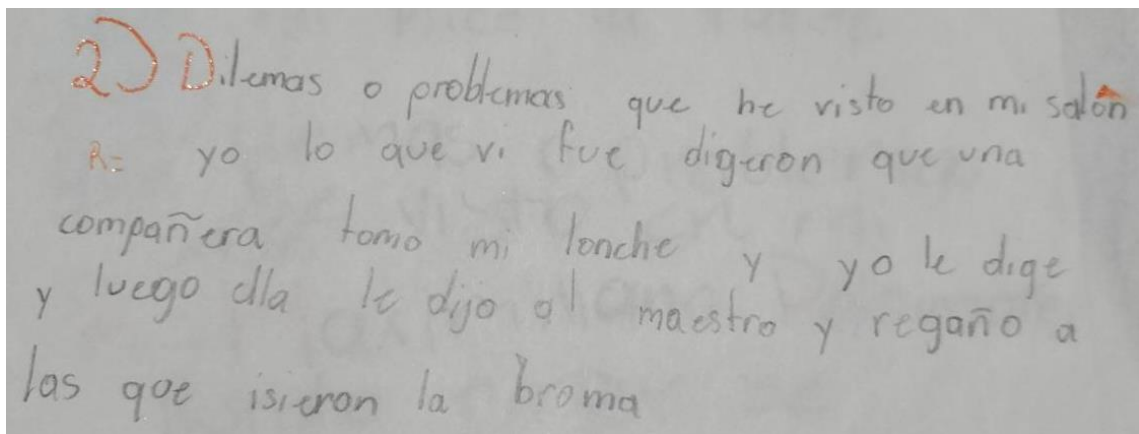 2) Dilemas o problemas que he visto en mi salón
R= yo lo que vi fue digeron que una
compañera tomo mi lonche y yo le dige
y luego ella le dijo al maestro y regaño a
las que isieron la broma